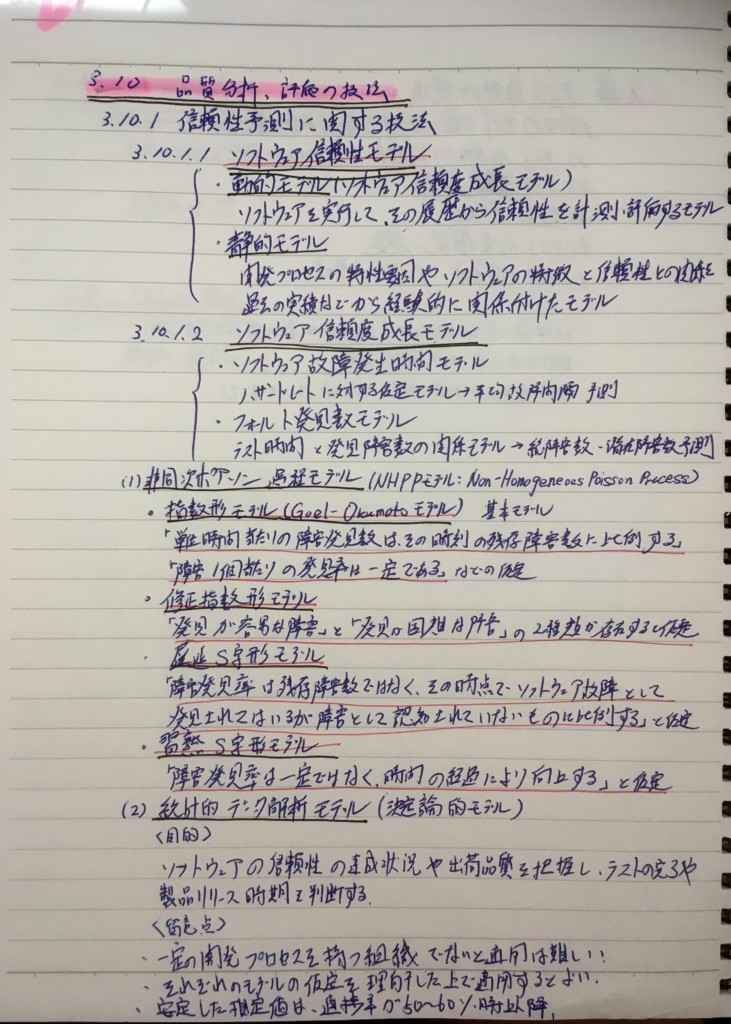 3.10 品質分析、評価の技法
3.10.1 信頼性予測に関する技法
3.10.1.1 ソフトウェア信頼性モデル
・動的モデル(ソフトウェア信頼度成長モデル)
ソフトウェアを実行して、その履歴から信頼性を計測・評価するモデル
・静的モデル
開発プロセスの特性要因やソフトウェアの特徴と信頼性との関係を
過去の実績などから経験的に関係付けたモデル
3.10.1.2 ソフトウェア信頼度成長モデル
・ソフトウェア故障発生時間モデル
ハザードレートに対する仮定モデル→平均故障間隔予測
・フォールト発見数モデル
テスト時間と発見障害数の関係モデル→総障害数・潜在障害数予測
(1) 非同次ポアソン過程モデル(NHPPモデル: Non-Homogeneous Poisson Process)
・指数形モデル(Goel-Okumotoモデル) 基本モデル
「単位時間当たりの障害発見数は、その時刻の残存障害数に比例する」
「障害1個当たりの発見率は一定である」などの仮定
・修正指数形モデル
「発見が容易な障害」と「発見が困難な障害」の2種類が存在すると仮定
・遅延S字形モデル
「障害発見率は残存障害数ではなく、その時点でソフトウェア故障として
発見されてはいるが障害として認知されていないものに比例する」と仮定
・習熟S字形モデル
「障害発見率は一定ではなく、時間の経過により向上する」と仮定
(2) 統計的データ解析モデル(決定論的モデル)
<目的>
ソフトウェアの信頼性の達成状況や出荷品質を把握し、テストの完了や
製品リリース時期を判断する.
<留意点>
・一定の開発プロセスを持つ組織でないと適用は難しい.
・それぞれのモデルの仮定を理解した上で適用するとよい.
・安定した推定値は、進捗率が50〜60%時以降.